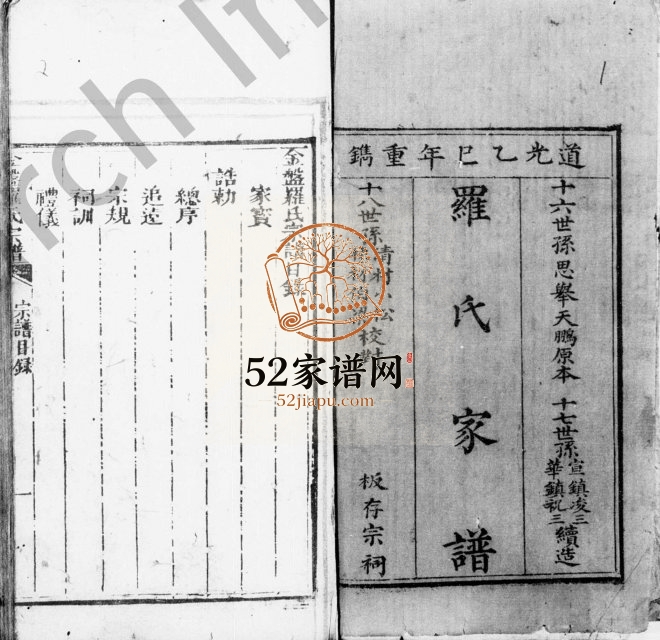 道光乙巳年重鐫
十六世孫思舉天鵬原本
十七世孫
宣鎮凌三
華鎮 三
續造
羅氏家譜
十八世孫
校
板存宗祠
1
金盤羅氏宗譜目錄
家寶
誥勅
總序
追遠
宗規
祠訓
禮儀
宗譜目録
一
2
rch In
52家谱网
52jiapu.com